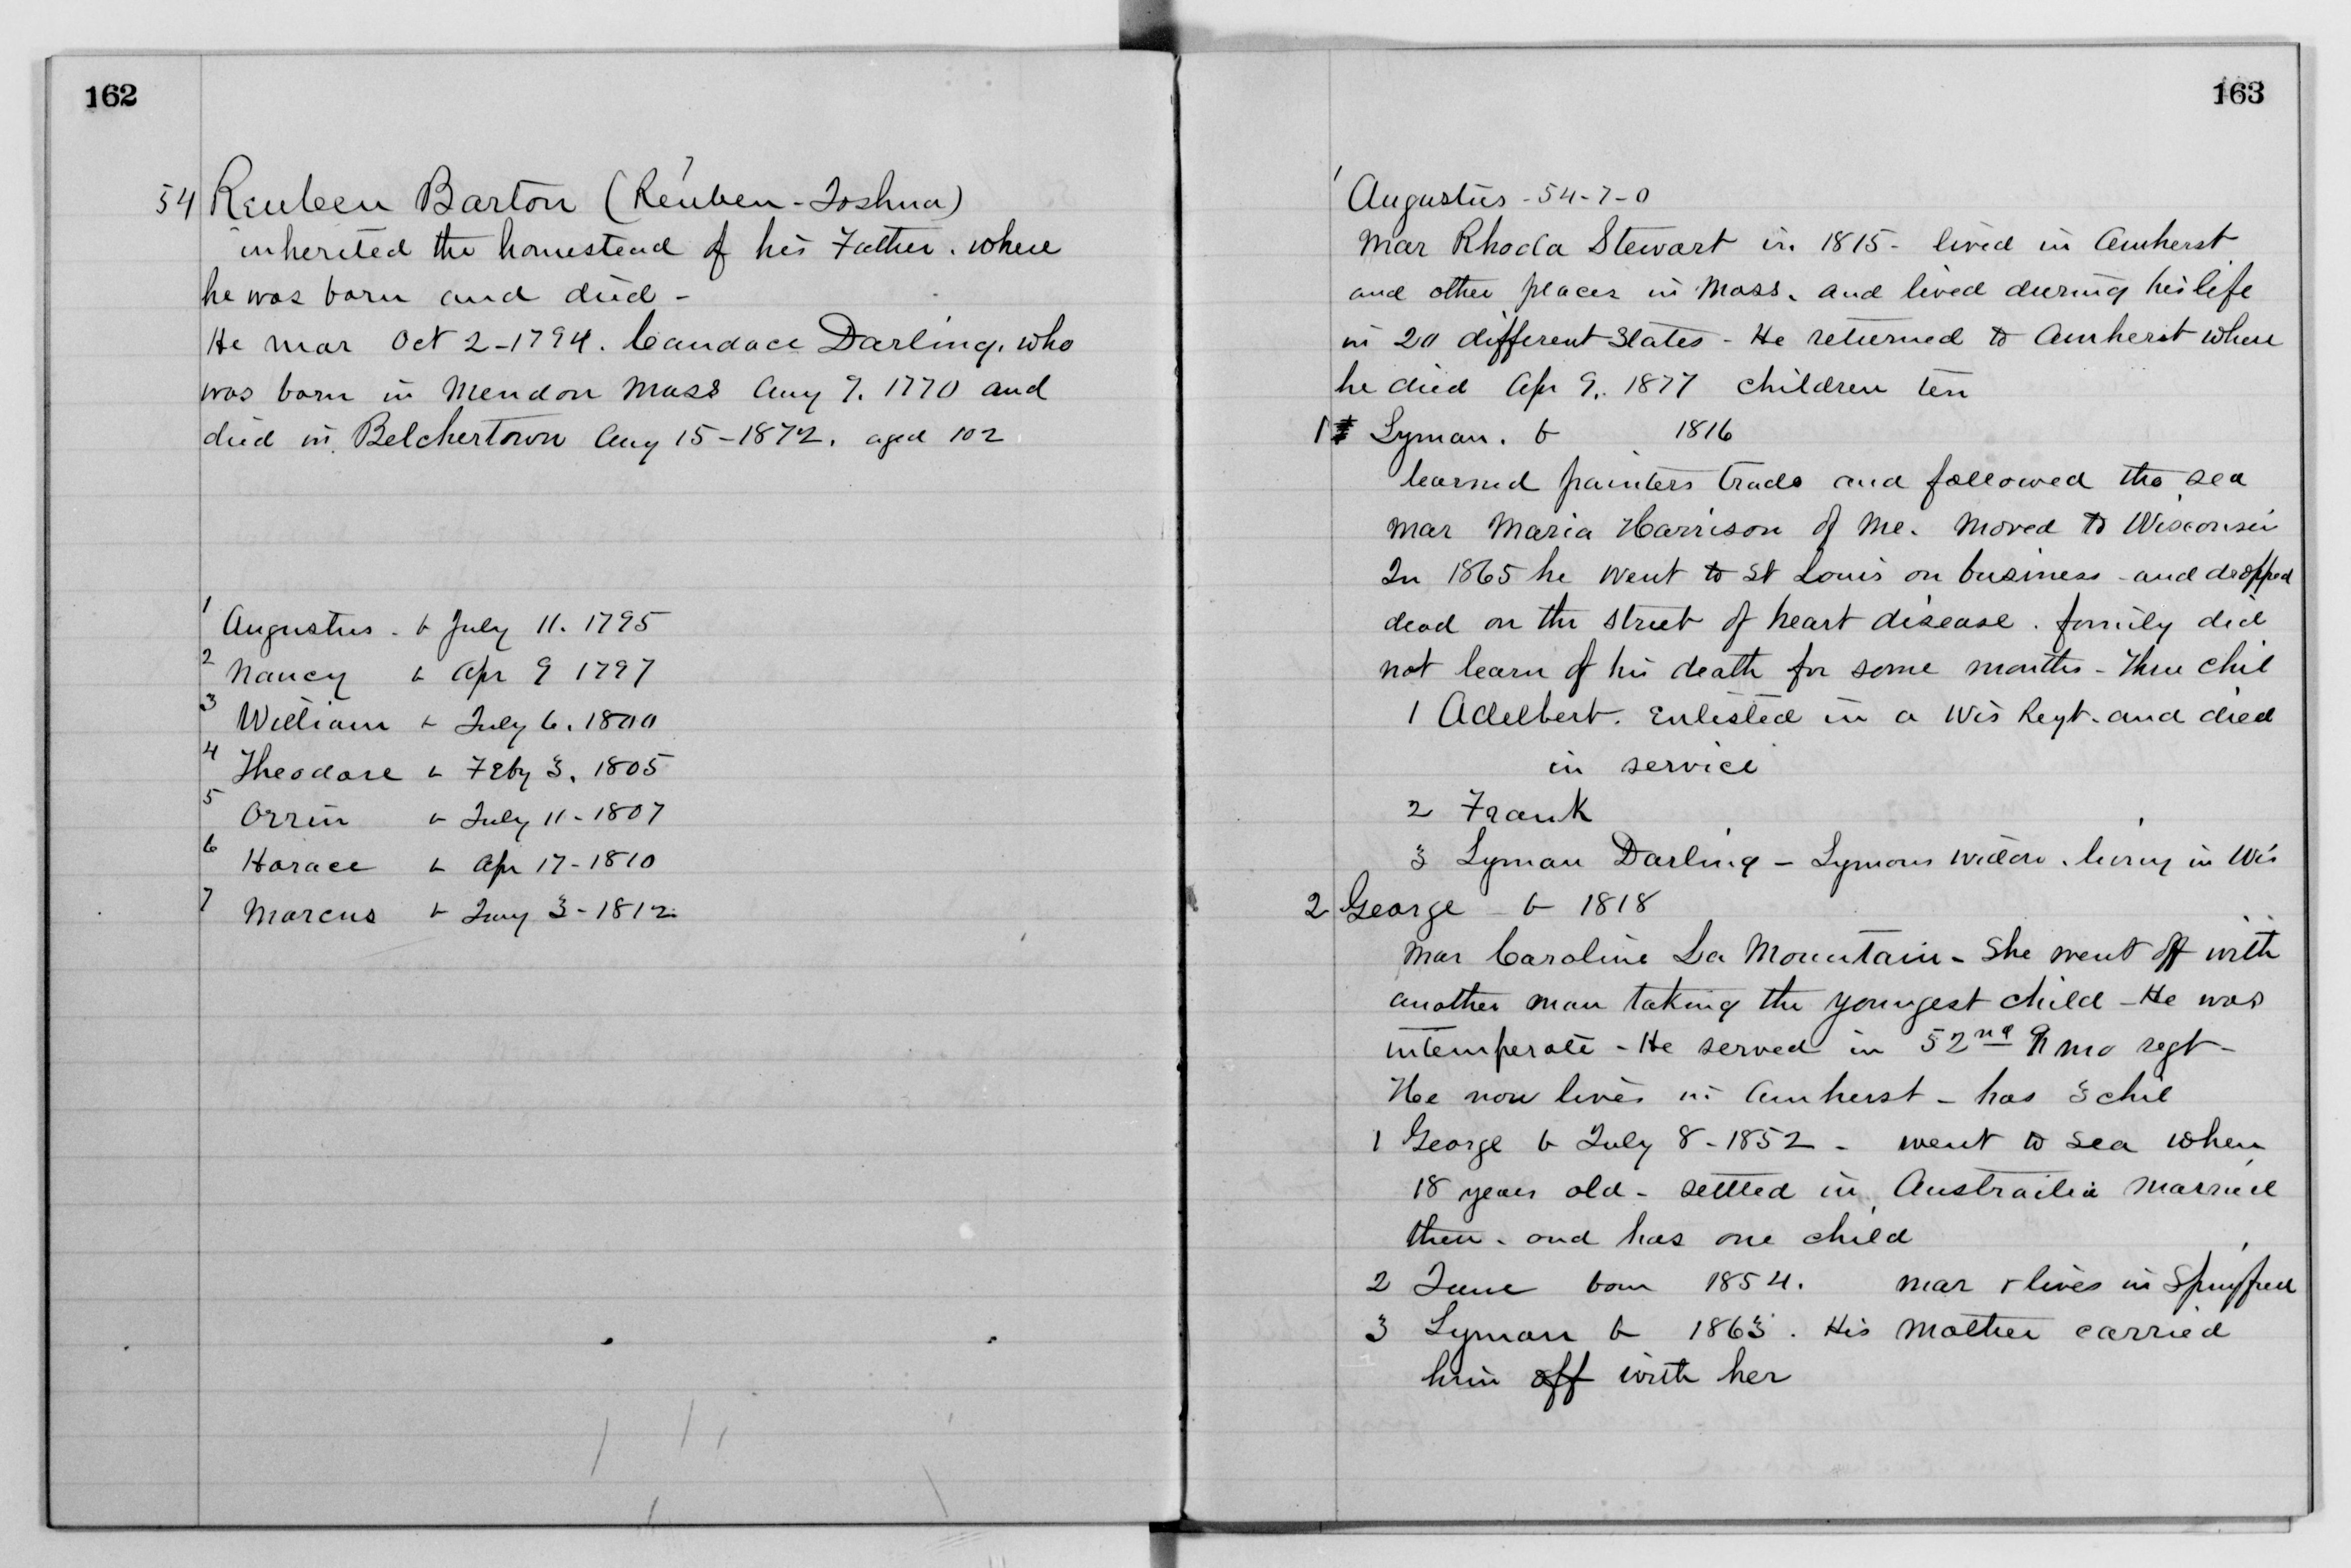 162
54 Reuben Barton (Reuben - Joshua)
7
inherited the homestead of his Father. where
he was born and died -
He mar Oct 2 - 1794. Candace Darling. who
was born in Mendon Mass Aug 9. 1770 and
died in Belchertown Aug 15 - 1872. aged 102
1 Augustus - b July 11. 1795
2 Nancy b Apr 9 1797
3 William b July 6. 1800
4 Theodore b Feby 3. 1805
5 Orrin b July 11 - 1807
6 Horace b Apr 17 - 1810
7 Marcus b 3 - 1812
163
1 Augustus - 54 - 7 - 0
Mar Rhoda Stewart in 1815 - lived in Amherst
and other places in Mass. and lived during his life
in 20 different States - He returned to Amherst where
he died Apr 9. 1877 children ten
1 Lyman. b 1816
learned painters trade and followed the sea
mar Maria Harrison of Me. moved to Wisconsin
In 1865 he went to St Louis on business - and dropped
dead on the street of heart disease. family did
not learn of his death for some months - Three chil
1 Adelbert. Enlisted in a Wis Regt. and died
in service
2 Frank
3 Lyman Darling - Lymans widow. living in Wis
2 George - b 1818
mar Caroline La Mountain - She went off with
another man taking the youngest child - He was
intemperate - He served in 52nd 9 mo regt -
He now lives in Amherst - has 3 chil
1 George b July 8 - 1852 - went to sea when
18 years old - settled in Austrailia married
there - and has one child
2 Jane born 1854. mar & lives in
3 Lyman b 1863. His Mother carried
him off with her